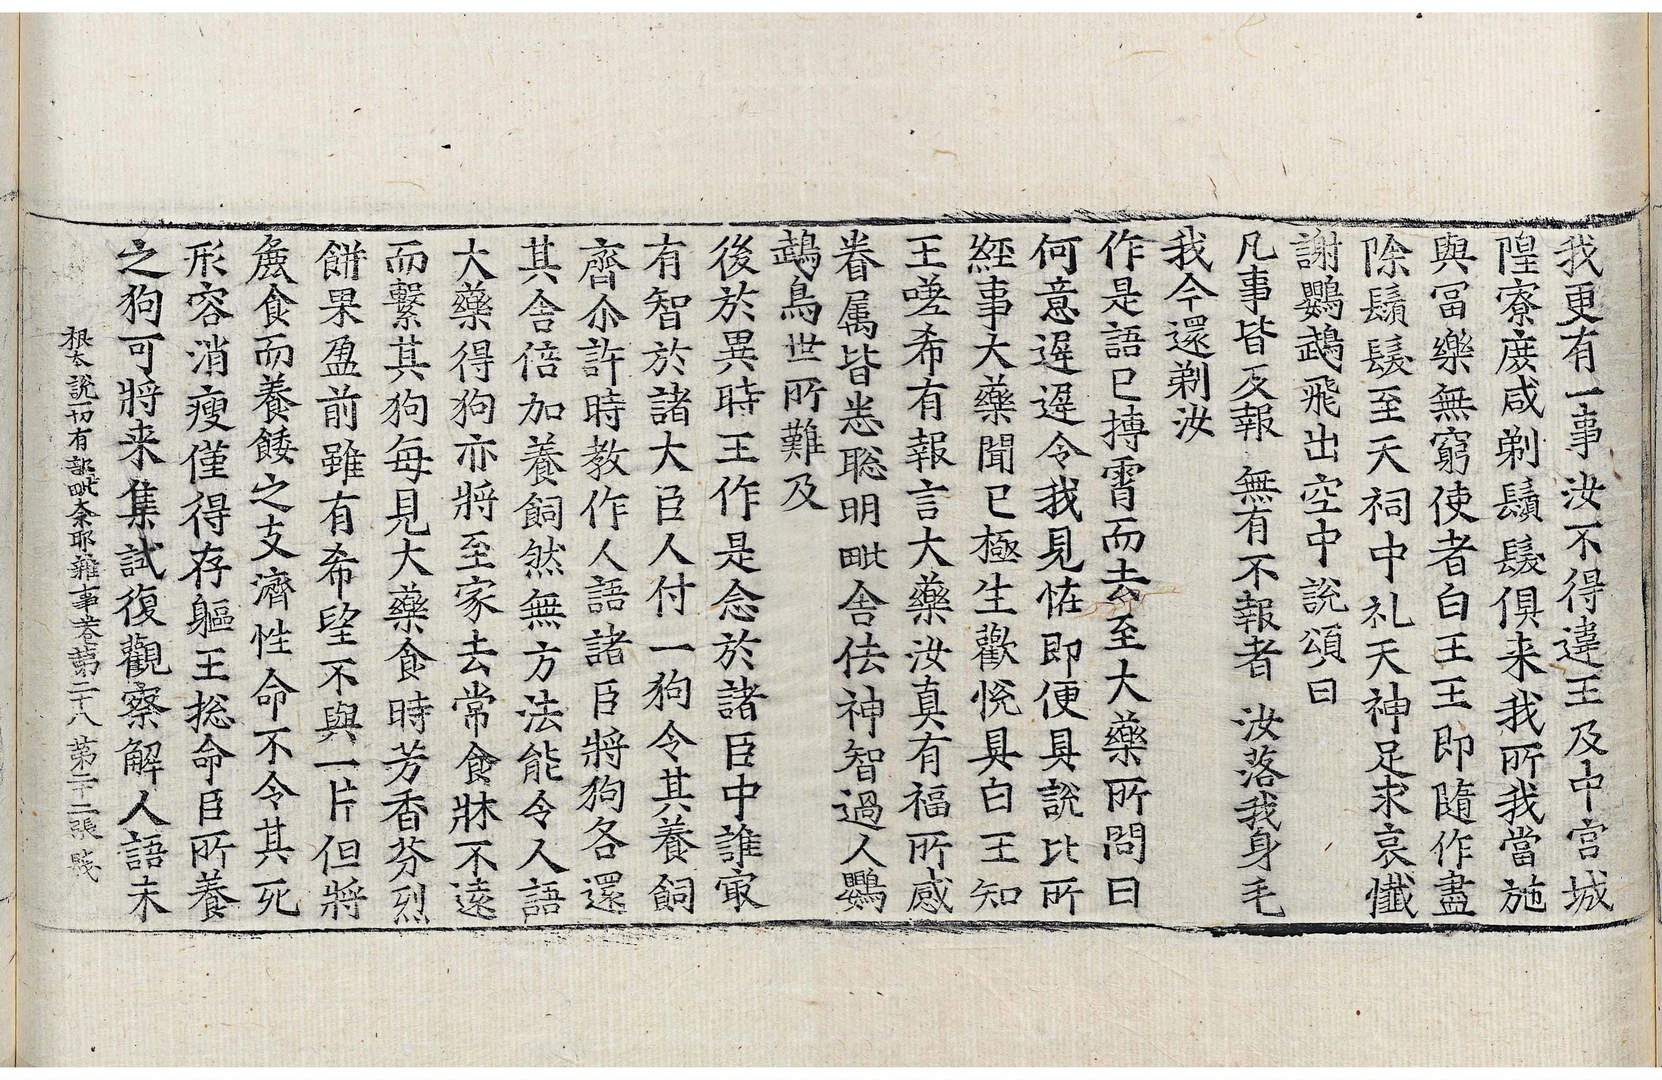 我更有一事汝不得違王及中宫城
隍寮庻咸剃鬚髮俱来我所我當施
與冨樂無窮使者白王王即隨作盡
除鬚髮至天祠中礼天神足求哀懴
謝鸚鵡飛出空中說頌曰
凡事皆反報　無有不報者　汝落我身毛
我今還剃汝
作是語已摶霄而去至大藥所問曰
何意遅遅令我見恠即便具說比所
經事大藥聞已極生歡悅具白王知
王嗟希有報言大藥汝真有福所感
眷属皆悉聡明毗舍佉神智過人鸚
鵡鳥世所難及
後於異時王作是念於諸臣中誰㝡
有智於諸大臣人付一狗令其養飼
齊尒許時教作人語諸臣將狗各還
其舍倍加養飼然無方法能令人語
大藥得狗亦將至家去常食牀不遠
而繫其狗每見大藥食時芳香芬烈
餅果盈前雖有希望不與一片但將
麁食而養餧之支濟性命不令其死
形容消瘦僅得存軀王捴命臣所養
之狗可將来集試復觀察解人語未
根夲說一切有部毗柰耶雜事卷第二十八　第二十二張